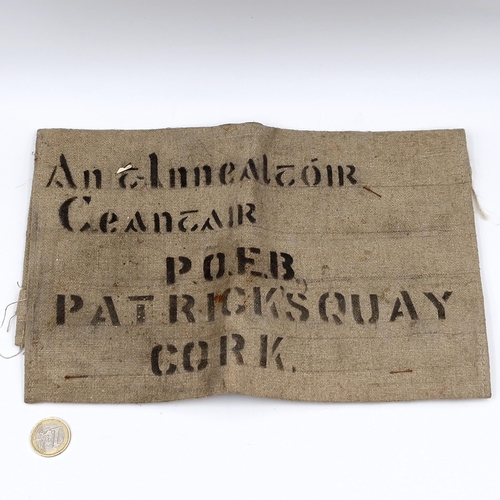 An tInnealtóir
Ceantair
P.O.E.B,
PATRICK'S QUAY
CORK.